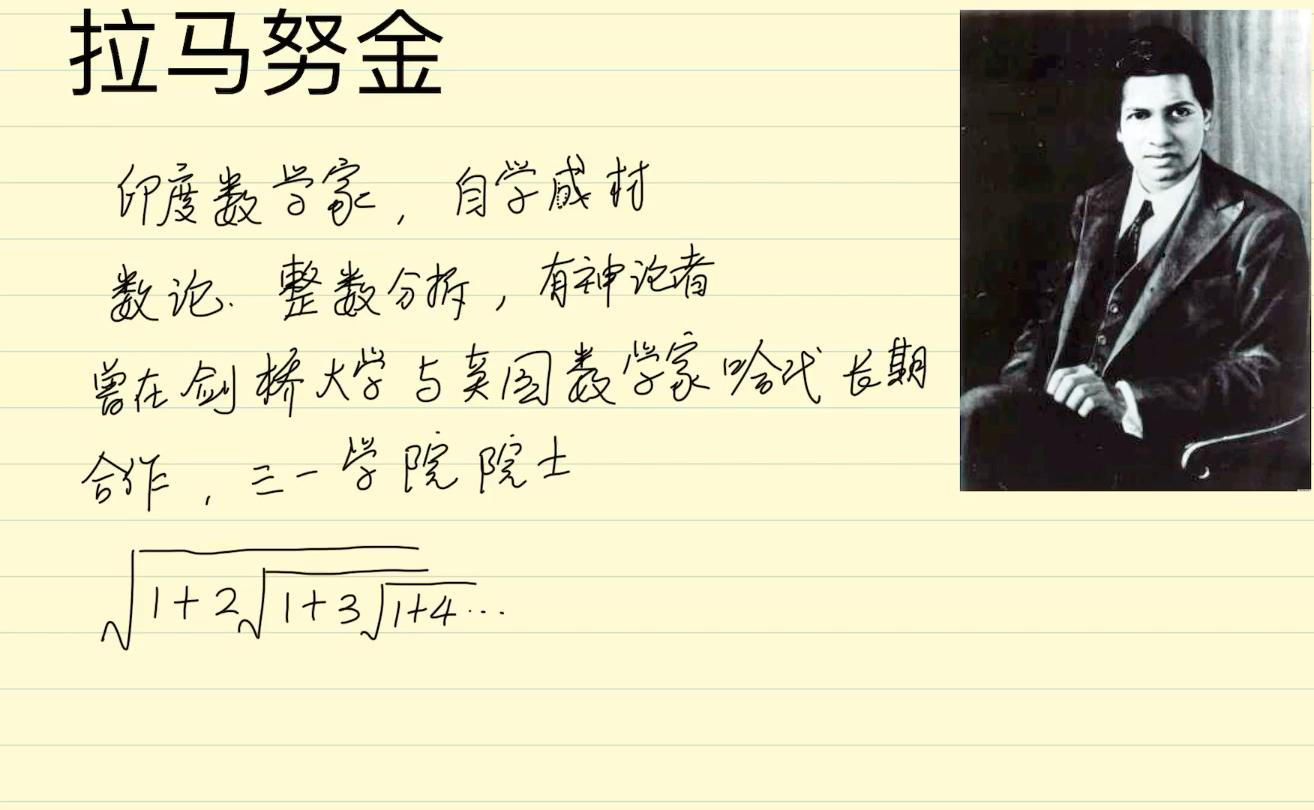 拉马努金
印度数学家，自学成材
数论．整数分拆，有神论者
曾在剑桥大学与英国数学家哈代长期
合作，三一学院院士
√(1+2√(1+3√(1+4···